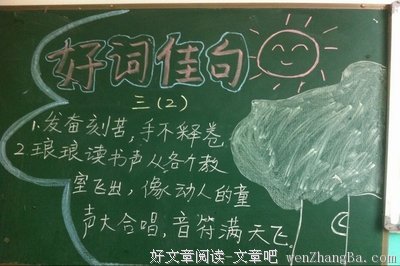 好词佳句
三(2)
1.发奋刻苦,手不释卷
2.琅琅读书声从各个教
室飞出,像动人的童
声大合唱,音符满天飞。
好文章阅读-文章吧 wenZhangBa.com